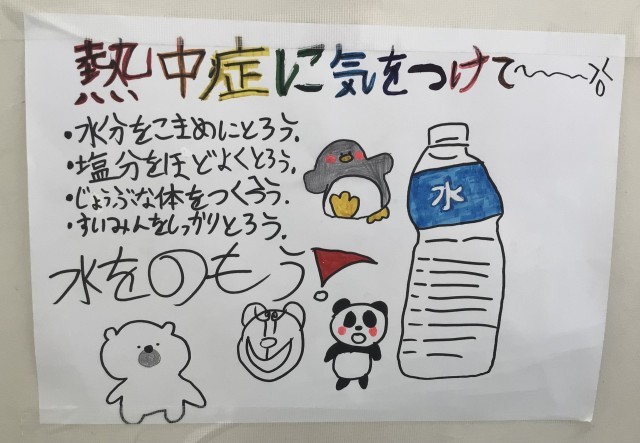 熱中症に気をつけて〜
・水分をこまめにとろう。
・塩分をほどよくとろう。
・じょうぶな体をつくろう。
・すいみんをしっかりとろう。
水をのもう
水